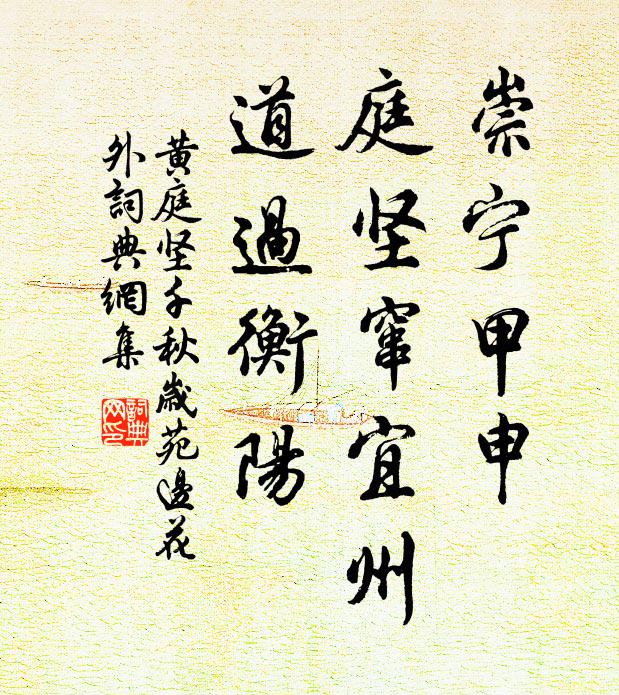 崇宁甲申
庭坚窜宜州
道過衡陽
黄庭坚千秋歲苑邊花
外詞典網集
詞典
网印